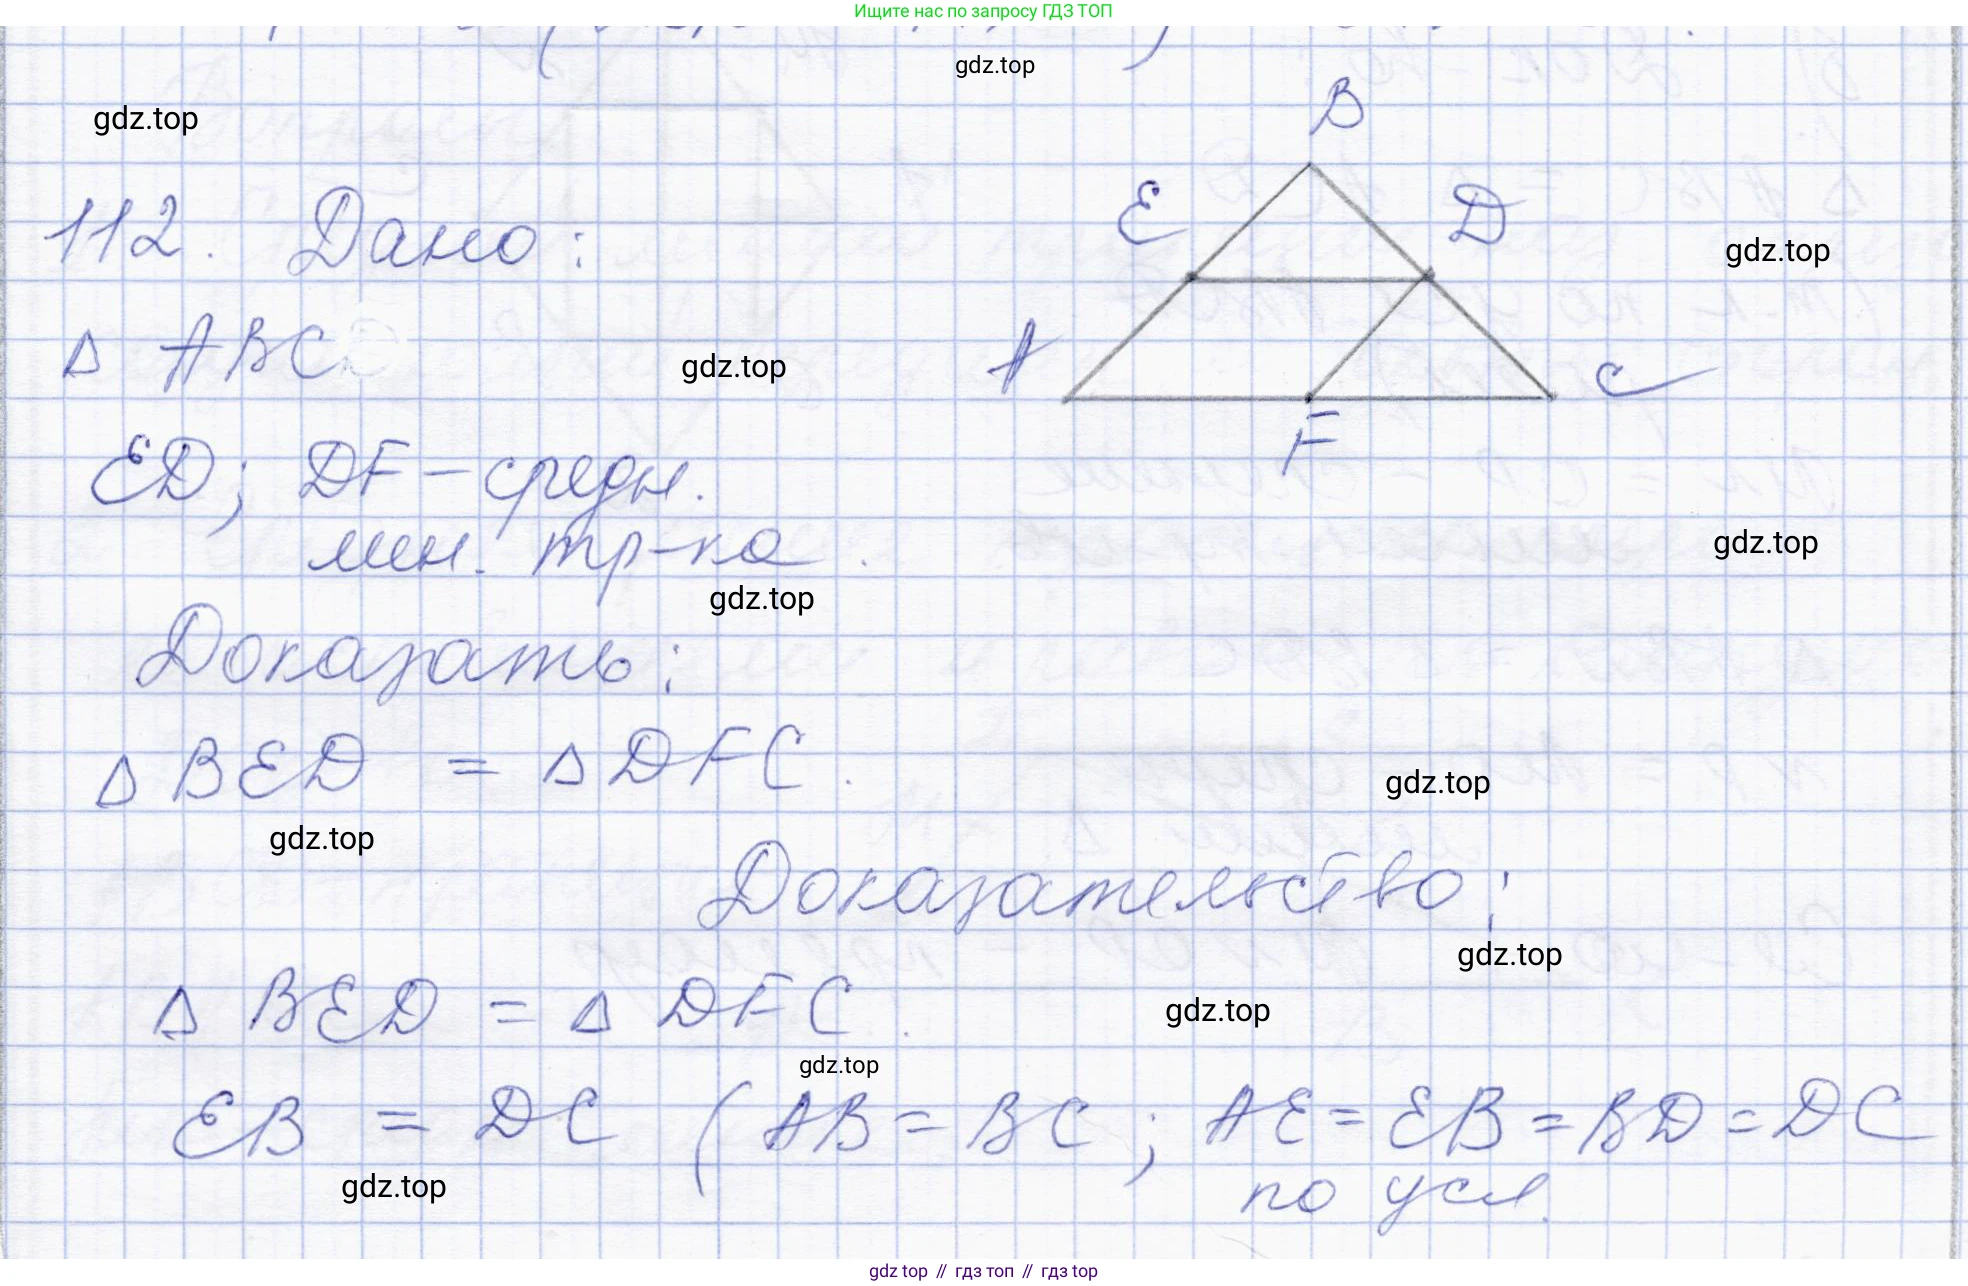 Ищите нас по запросу ГДЗ ТОП
gdz.top
gdz.top
B
E
D
112. Дано:
gdz.top
Δ ABC
gdz.top
A
C
F
ED; DF - средн.
лин. тр-ка.
gdz.top
gdz.top
Доказать:
Δ BED = Δ DFC.
gdz.top
gdz.top
Доказательство:
gdz.top
Δ BED = Δ DFC.
gdz.top
gdz.top
EB = DC (AB = BC; AE = EB = BD = DC
по усл.
gdz.top
gdz top // гдз топ // гдз top